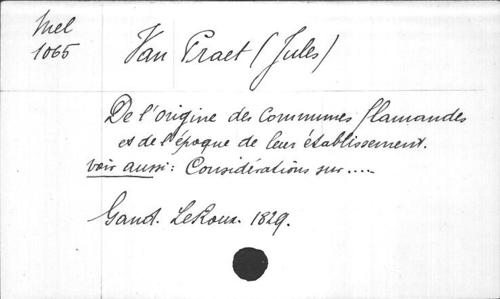 Mel
1065
Van Praet (Jules)
De l'origine des communes flamandes
et de l'époque de leur établissement.
voir aussi: Considérations sur.....
Gand. LeRoux. 1829.